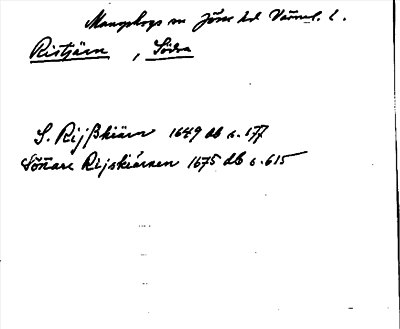 Mangskogs sn Jösse hd Värml. l.
Ristjärn , Södra
S. Rijßkiärn 1649 db s. 177
Sönnare Rijskiärnen 1675 db s. 615